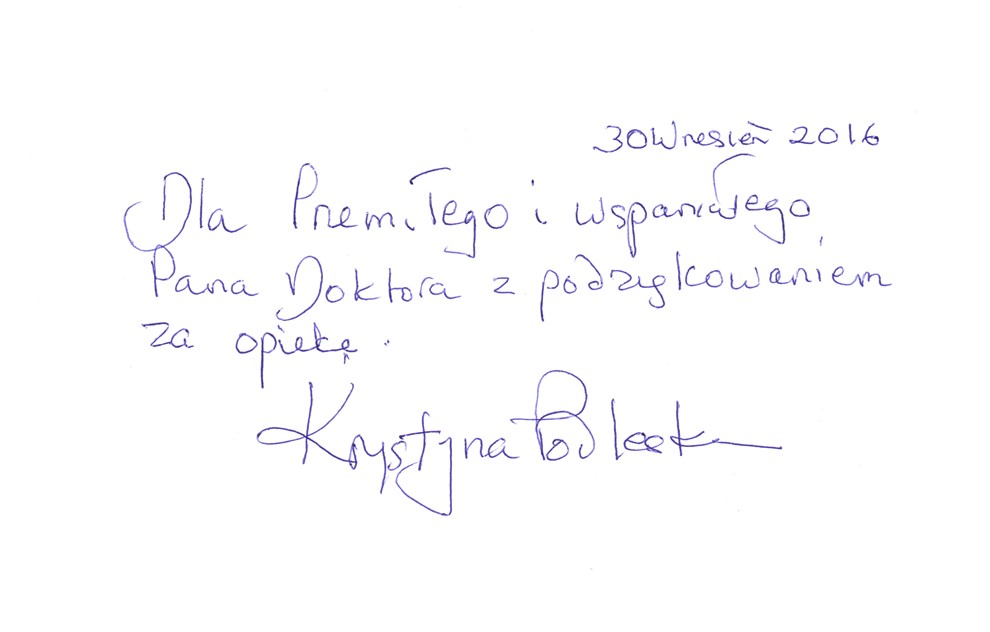 30 Wrzesień 2016
Dla Przemiłego i wspaniałego
Pana Doktora z podziękowaniem
za opiekę.
Krystyna